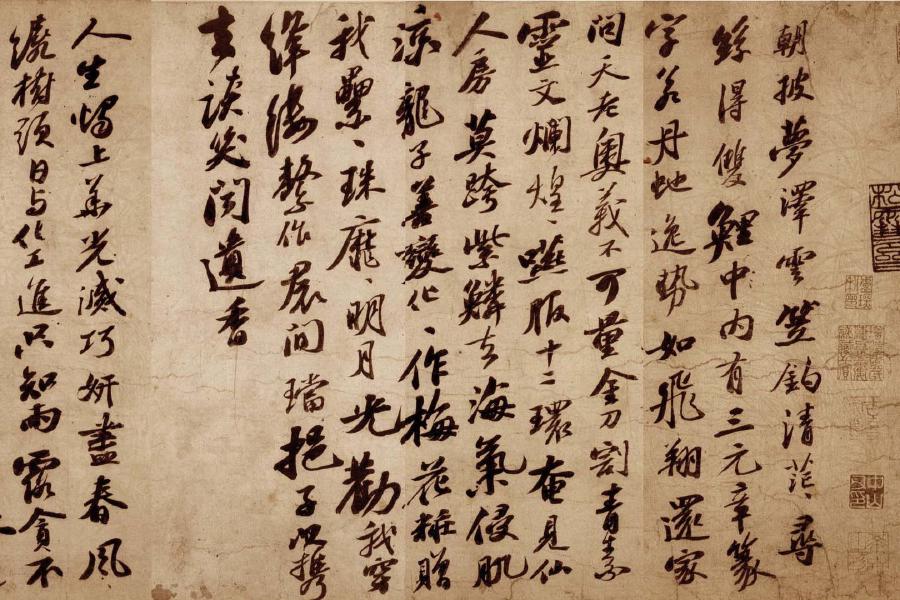 朝披夢澤雲笠釣清茫、尋
絲得雙鯉中內有三元章篆
字若丹虵逸勢如飛翔還家
問天老奧義不可量金刀割青素
靈文爛煌、嚥服十二環奄見仙
人房莫跨紫鱗去海氣侵肌
涼龍子善變化、作梅花粧贈
我纍、珠靡、明月光勸我穿
絳縷繫作裙間璫挹子以攜
去談笑聞遺香
人生燭上華光滅巧妍盡春風
繞樹頭日與化工進只知雨露貪不